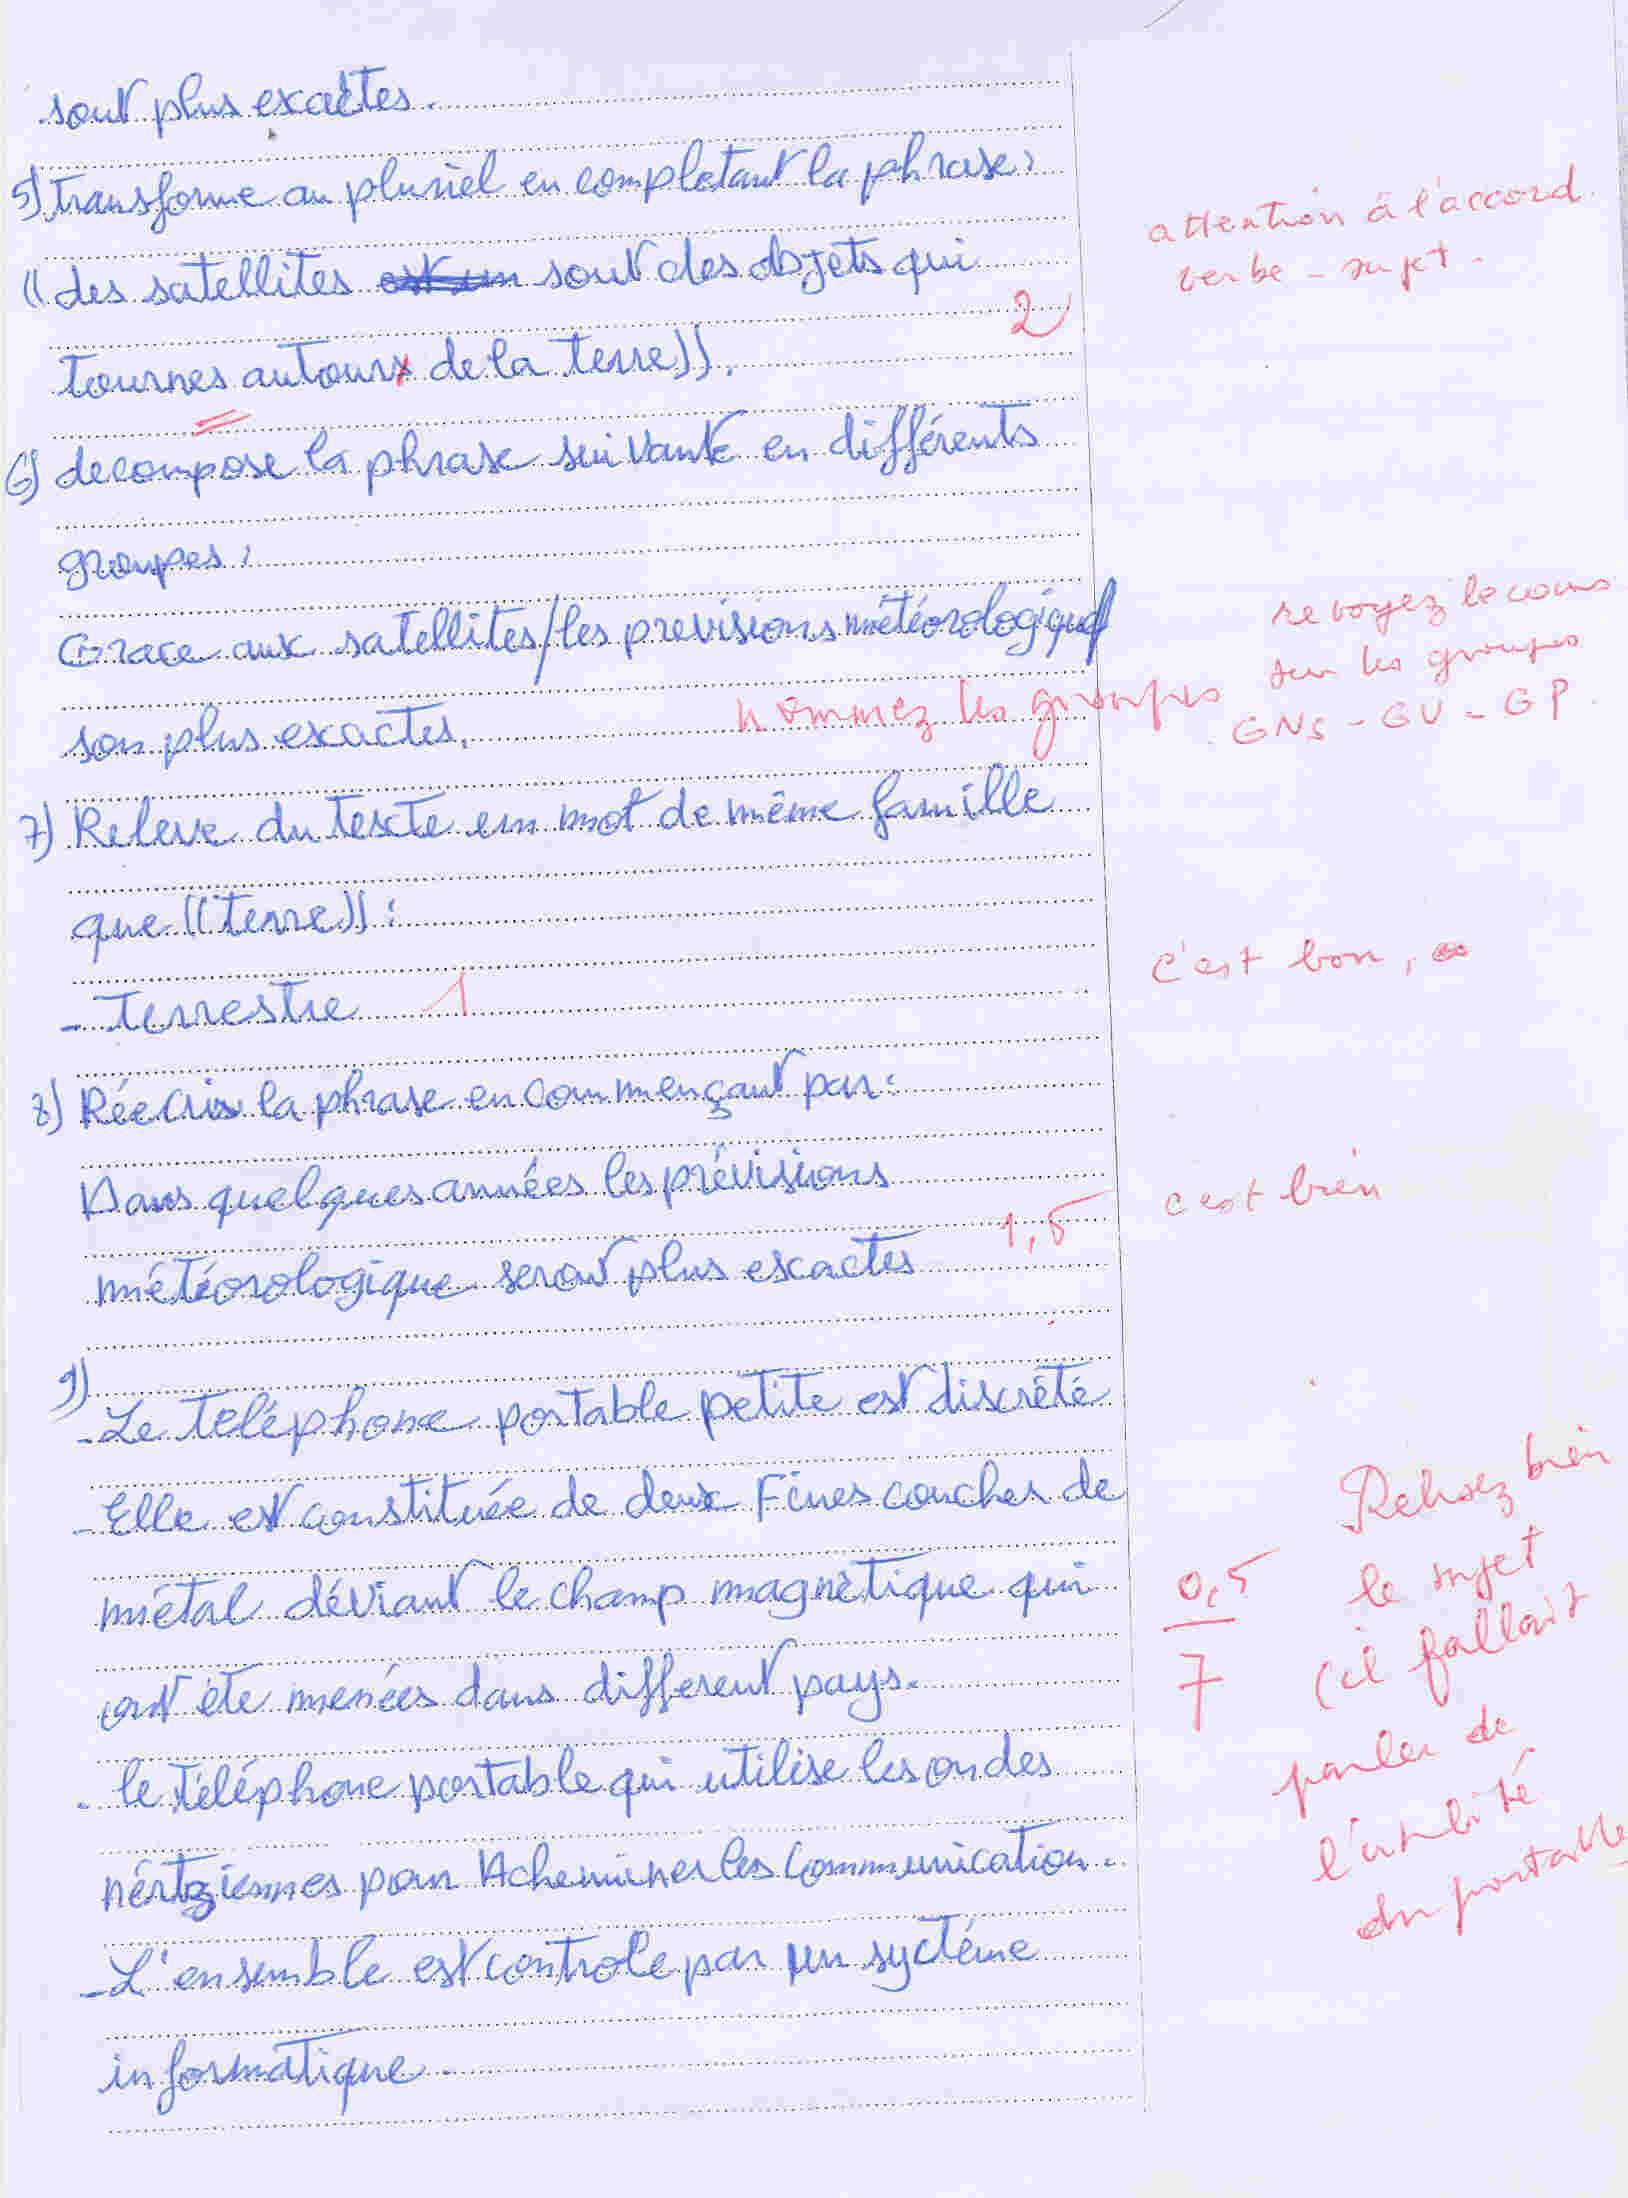 sont plus exactes.
5) transforme au pluriel en completant la phrase:
"des satellites est un sont des objets qui
2
tournes autours de la terre)).
attention à l'accord
verbe - sujet.
6) decompose la phrase suivante en différents
groupes:
Grace aux satellites/les previsions météorologique/
son plus exactes.
nommez les groupes
revoyez le cours
sur les groupes
GNS - GV - GP.
7) Releve du texte un mot de même famille
que ((terre)):
- Terrestre 1
c'est bon,
8) Réecris la phrase en commençant par:
Dans quelques années les prévisions
météorologique seront plus exactes
1,5
c'est bien
9)
- Le teléphone portable petite est discrété
- Elle est constituée de deux Fines couches de
métal déviant le champ magnètique qui
ont éte menées dans different pays.
- le téléphone portable qui utilise les ondes
hértziennes pour Acheminer les Communication.
- L'ensemble est controle par un syctéme
informatique.
0,5
7
Relisez bien
le sujet
(il fallait
parler de
l'utilité
du portable